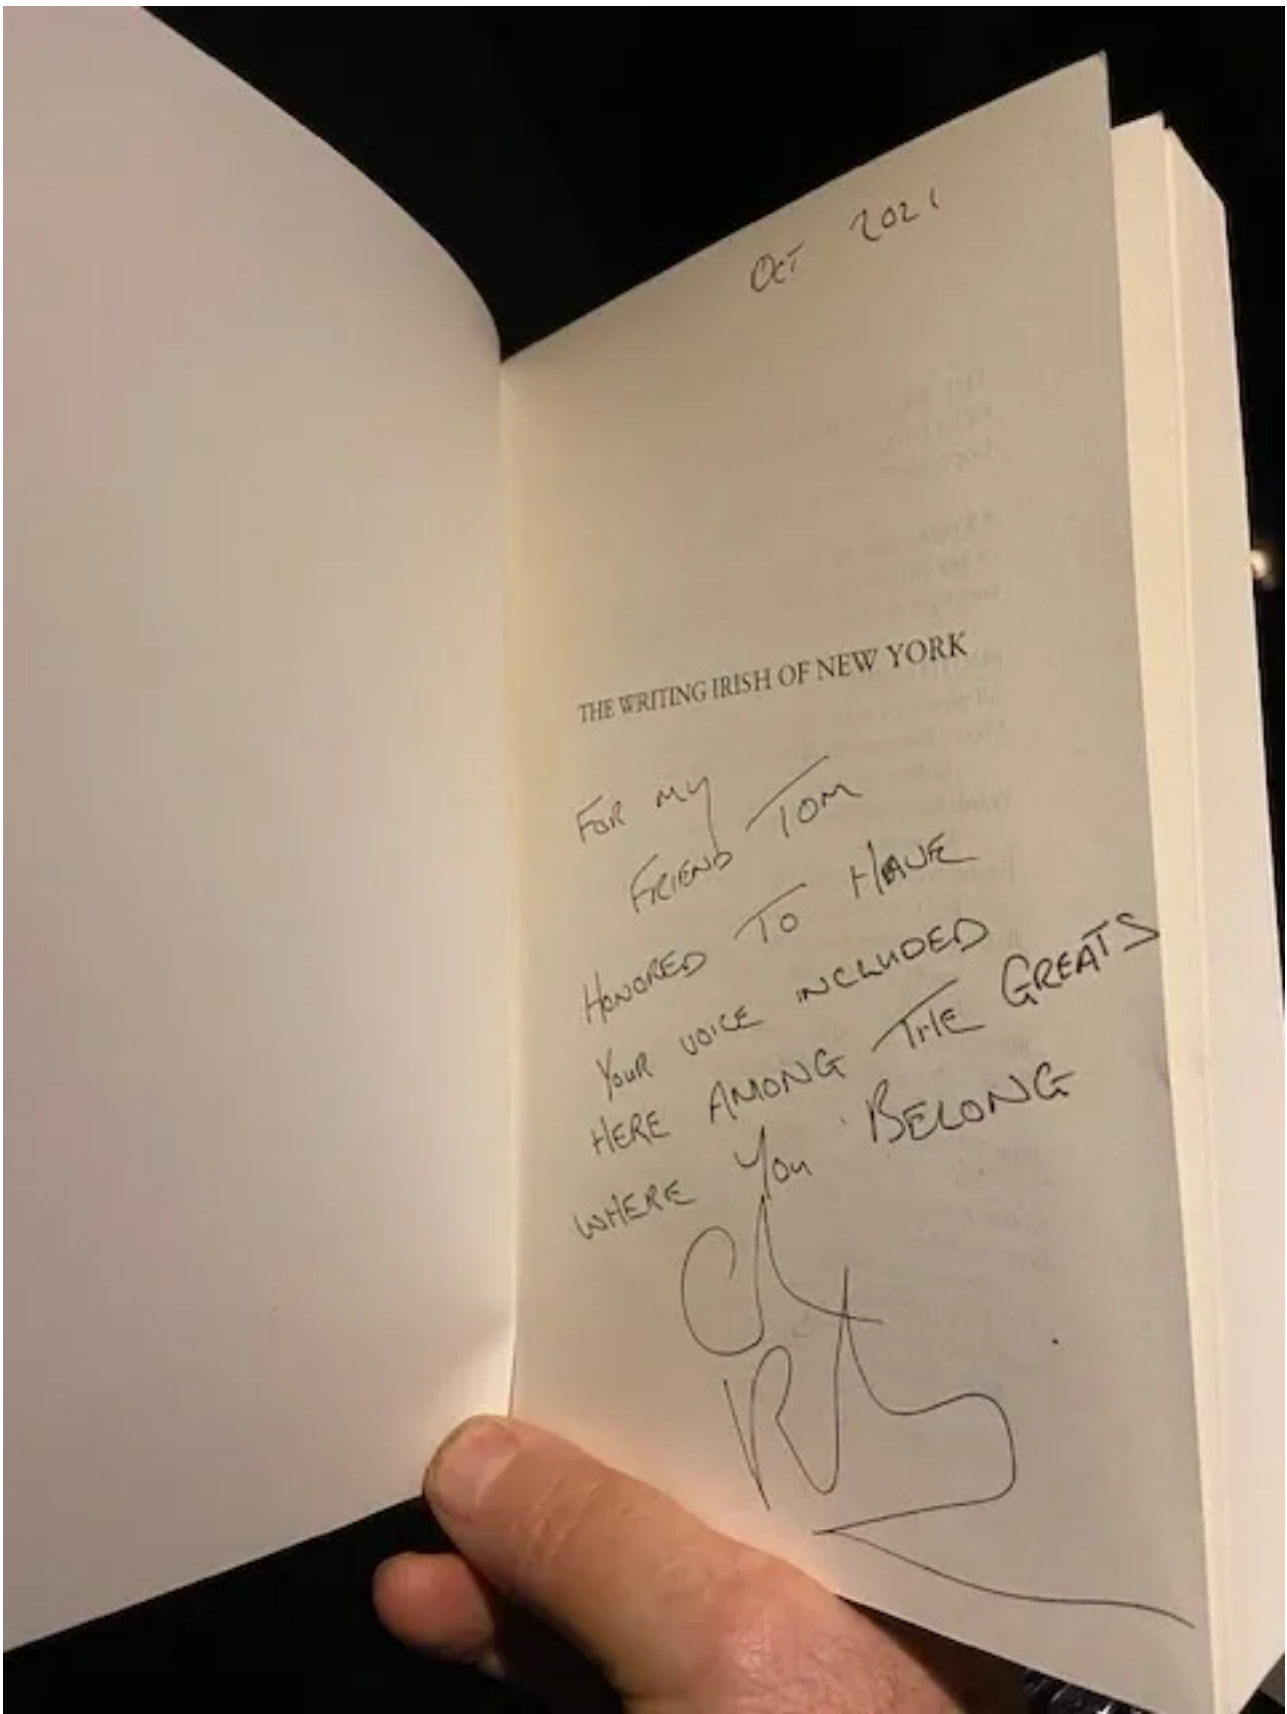 OCT 2021
THE WRITING IRISH OF NEW YORK
FOR MY
FRIEND TOM
HONORED TO HAVE
YOUR VOICE INCLUDED
HERE AMONG THE GREATS
WHERE YOU BELONG